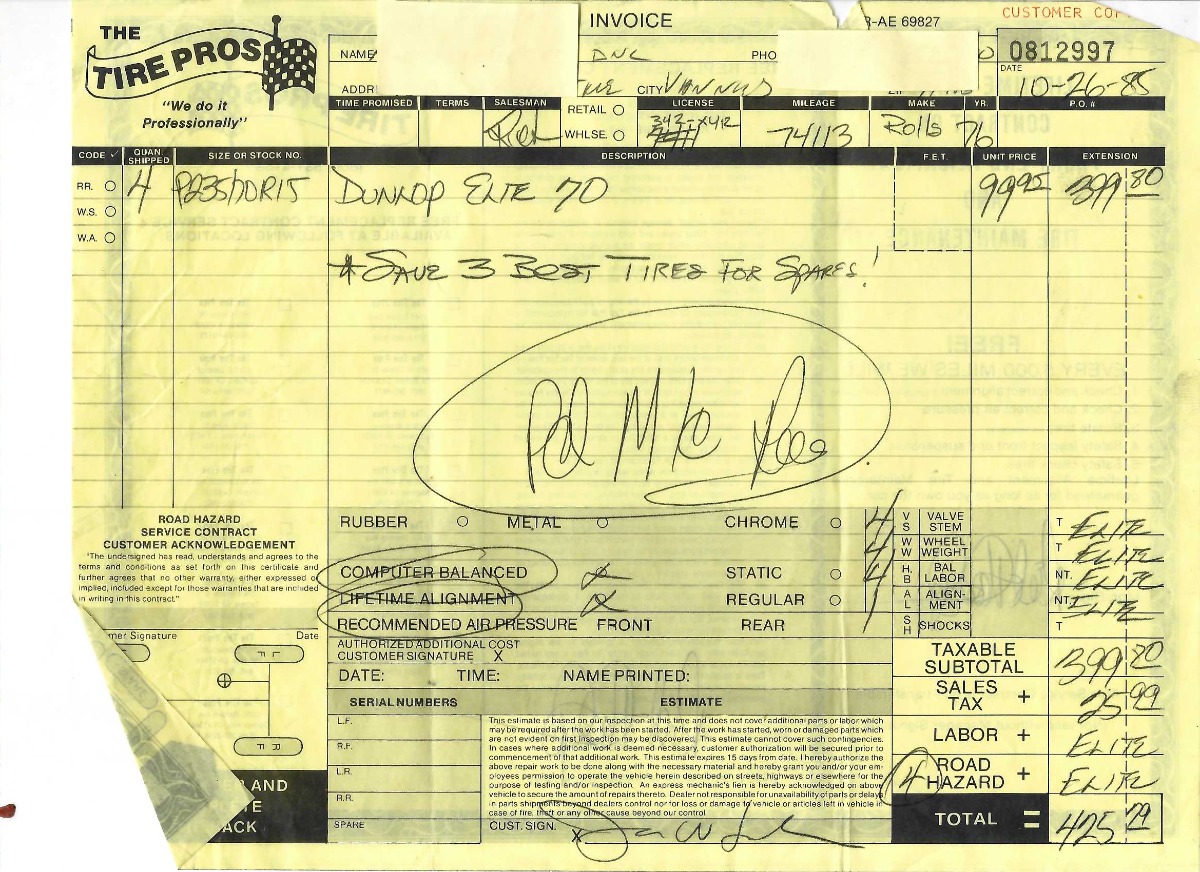 INVOICE
-AE 69827
CUSTOMER COP
THE
TIRE PROS
"We do it
Professionally"
NAME
DNL
PHO
0812997
ADDR
CITY VAN NUYS
DATE
10-26-85
TIME PROMISED TERMS SALESMAN RETAIL LICENSE MILEAGE MAKE YR. P.O. #
WHLSE. 74113 Rolls 76
CODE QUAN. SHIPPED SIZE OR STOCK NO. DESCRIPTION F.E.T. UNIT PRICE EXTENSION
RR. 4 DUNLOP ELITE 70 99 95 399 80
W.S.
W.A.
* SAVE 3 BEST TIRES FOR SPARES!
ROAD HAZARD
SERVICE CONTRACT
CUSTOMER ACKNOWLEDGEMENT
"The undersigned has read, understands and agrees to the
terms and conditions as set forth on this certificate and
further agrees that no other warranty, either expressed or
implied, included except for those warranties that are included
in writing in this contract."
mer Signature Date
RUBBER METAL CHROME 4 VS VALVE STEM T ELITE
4 WW WHEEL WEIGHT T ELITE
COMPUTER BALANCED X STATIC 4 H.B BAL LABOR NT. ELITE
LIFETIME ALIGNMENT X REGULAR 1 AL ALIGN-MENT NT. ELITE
RECOMMENDED AIR PRESSURE FRONT REAR SH SHOCKS T
AUTHORIZED ADDITIONAL COST
CUSTOMER SIGNATURE X
DATE: TIME: NAME PRINTED:
TAXABLE SUBTOTAL 399 80
SALES TAX + 25 99
LABOR + ELITE
4 ROAD HAZARD + ELITE
TOTAL = 425 79
SERIAL NUMBERS
L.F.
R.F.
L.R.
R.R.
SPARE
ESTIMATE
This estimate is based on our inspection at this time and does not cover additional parts or labor which
may be required after the work has been started. After the work has started, worn or damaged parts which
are not evident on first inspection may be discovered. This estimate cannot cover such contingencies.
In cases where additional work is deemed necessary, customer authorization will be secured prior to
commencement of that additional work. This estimate expires 15 days from date. I hereby authorize the
above repair work to be done along with the necessary material and hereby grant you and/or your em-
ployees permission to operate the vehicle herein described on streets, highways or elsewhere for the
purpose of testing and/or inspection. An express mechanic's lien is hereby acknowledged on above
vehicle to secure the amount of repairs thereto. Dealer not responsible for unavailability of parts or delays
in parts shipments beyond dealers control nor for loss or damage to vehicle or articles left in vehicle in
case of fire, theft or any other cause beyond our control
CUST. SIGN. X
R AND
ACK